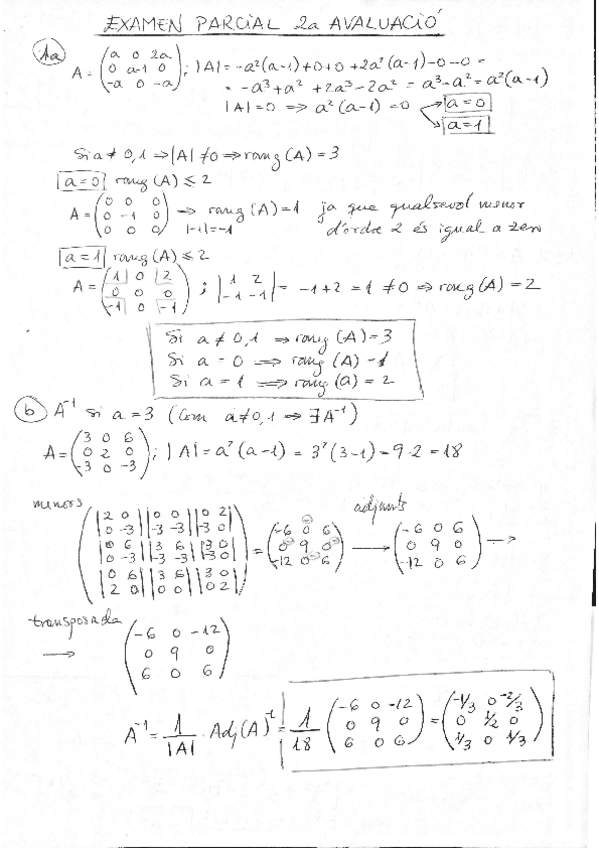 EXAMEN PARCIAL 2a AVALUACIÓ
1a) A = (a 0 2a; 0 a-1 0; -a 0 -a); |A| = -a²(a-1)+0+0+2a²(a-1)-0-0 =
= -a³+a²+2a³-2a² = a³-a² = a²(a-1)
|A|=0 ⇒ a²(a-1)=0 → a=0
→ a=1
Si a≠0,1 ⇒ |A|≠0 ⇒ rang(A)=3
a=0 rang(A)≤2
A = (0 0 0; 0 -1 0; 0 0 0) → rang(A)=1 ja que qualsevol menor
|-1|=-1 d'ordre 2 és igual a zero
a=1 rang(A)≤2
A = (1 0 2; 0 0 0; -1 0 -1); |1 2; -1 -1| = -1+2 = 1 ≠0 ⇒ rang(A)=2
Si a≠0,1 ⇒ rang(A)=3
Si a=0 ⇒ rang(A)=1
Si a=1 ⇒ rang(a)=2
b) A⁻¹ si a=3 (Com a≠0,1 ⇒ ∃A⁻¹)
A = (3 0 6; 0 2 0; -3 0 -3); |A| = a²(a-1) = 3²(3-1) = 9·2 = 18
menors adjunts
(|2 0; 0 -3| |0 0; -3 -3| |0 2; -3 0|; |0 6; 0 -3| |3 6; -3 -3| |3 0; -3 0|; |0 6; 2 0| |3 6; 0 0| |3 0; 0 2|) = (-6 0 6; 0 9 0; -12 0 6) → (-6 0 6; 0 9 0; -12 0 6) →
transposada
→ (-6 0 -12; 0 9 0; 6 0 6)
A⁻¹ = 1/|A| · Adj(A)ᵗ = 1/18 (-6 0 -12; 0 9 0; 6 0 6) = (-1/3 0 -2/3; 0 1/2 0; 1/3 0 1/3)